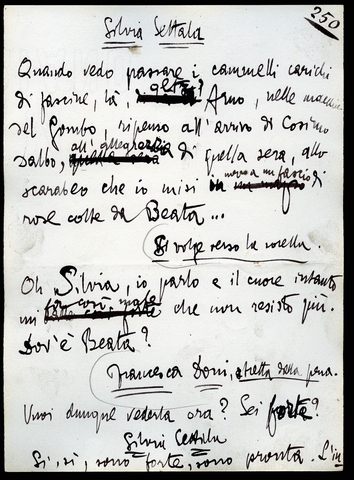 250
Silvia Settala
Quando vedo passare i cammelli carichi
di fascine, là, oltr' Arno, nelle macchie
del Gombo, ripenso all'arrivo di Cosimo
Dalbo, all'allegrezza di quella sera, allo
scarabeo che io misi in mezzo a un fascio di
rose colte da Beata...
Si volge verso la sorella.
Oh Silvia, io parlo e il cuore intanto
mi fa così male che non resisto più.
Dov'è Beata?
Francesca Doni, stretta dalla pena.
Vuoi dunque vederla ora? Sei forte?
Silvia Settala
Si, sì, sono forte, sono pronta.